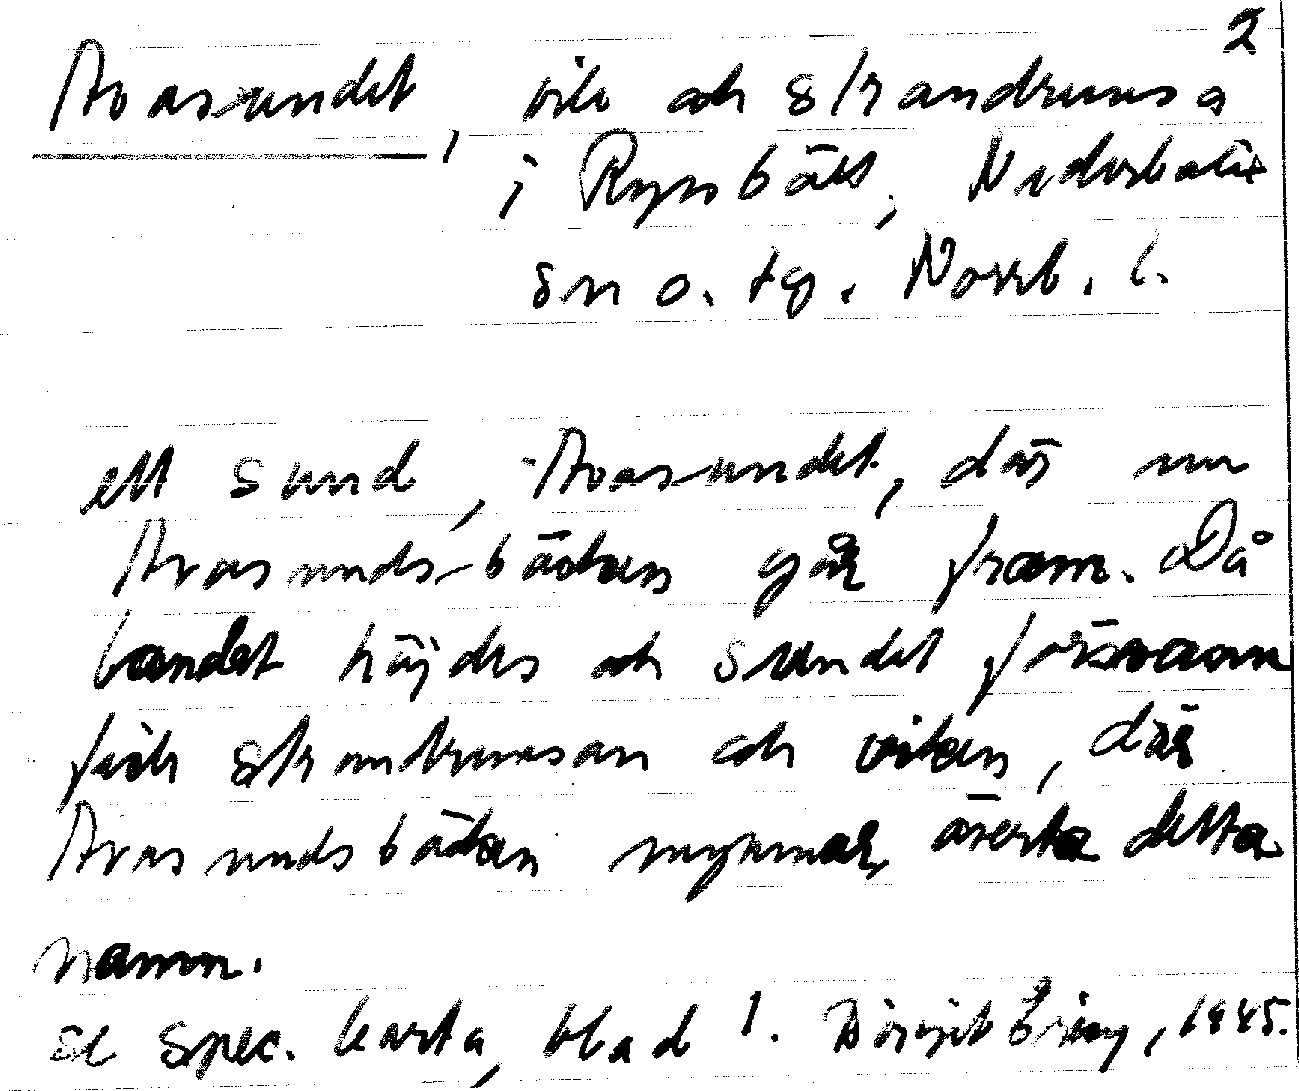 2
Avasundet, vik och strandremsa
i Ryssbält, Nederkalix
sn o. tg. Norrb. l.
ett sund, Avasundet, där nu
Avasunds-bäcken går fram. Då
landet höjdes och sundet försvann
fick strandremsan och viken, där
Avasundsbäcken mynnar ärvta detta
namn.
se spec. karta, blad 1. Birgit 1945.